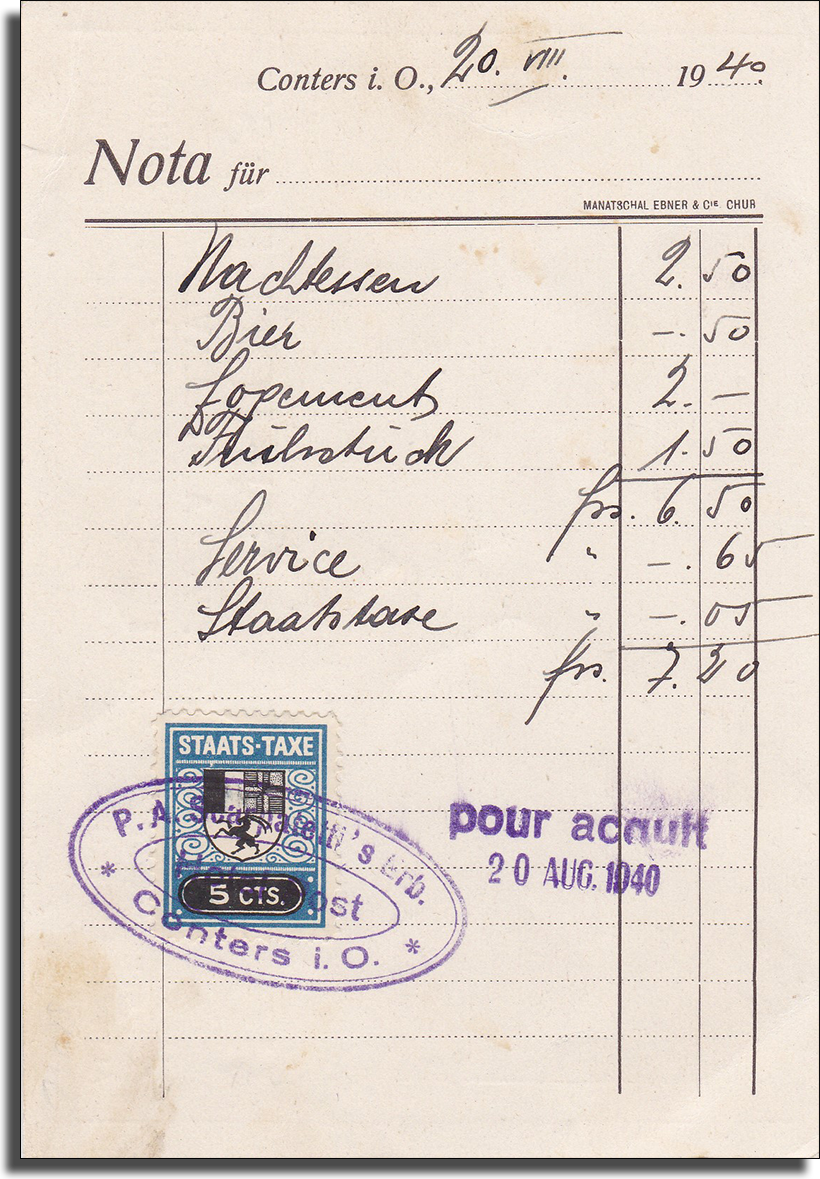 Conters i. O., 20. VIII. 1940.
Nota für
MANATSCHAL EBNER & CIE. CHUR
Nachtessen 2. 50
Bier –. 50
Logement 2. –
Frühstück 1. 50
frs. 6. 50
Service " –. 65
Staatstaxe " –. 05
frs. 7. 20
STAATS-TAXE
5 CTS.
P. A. 's Erb.
Post
Conters i. O.
pour acquit
20 AUG. 1940